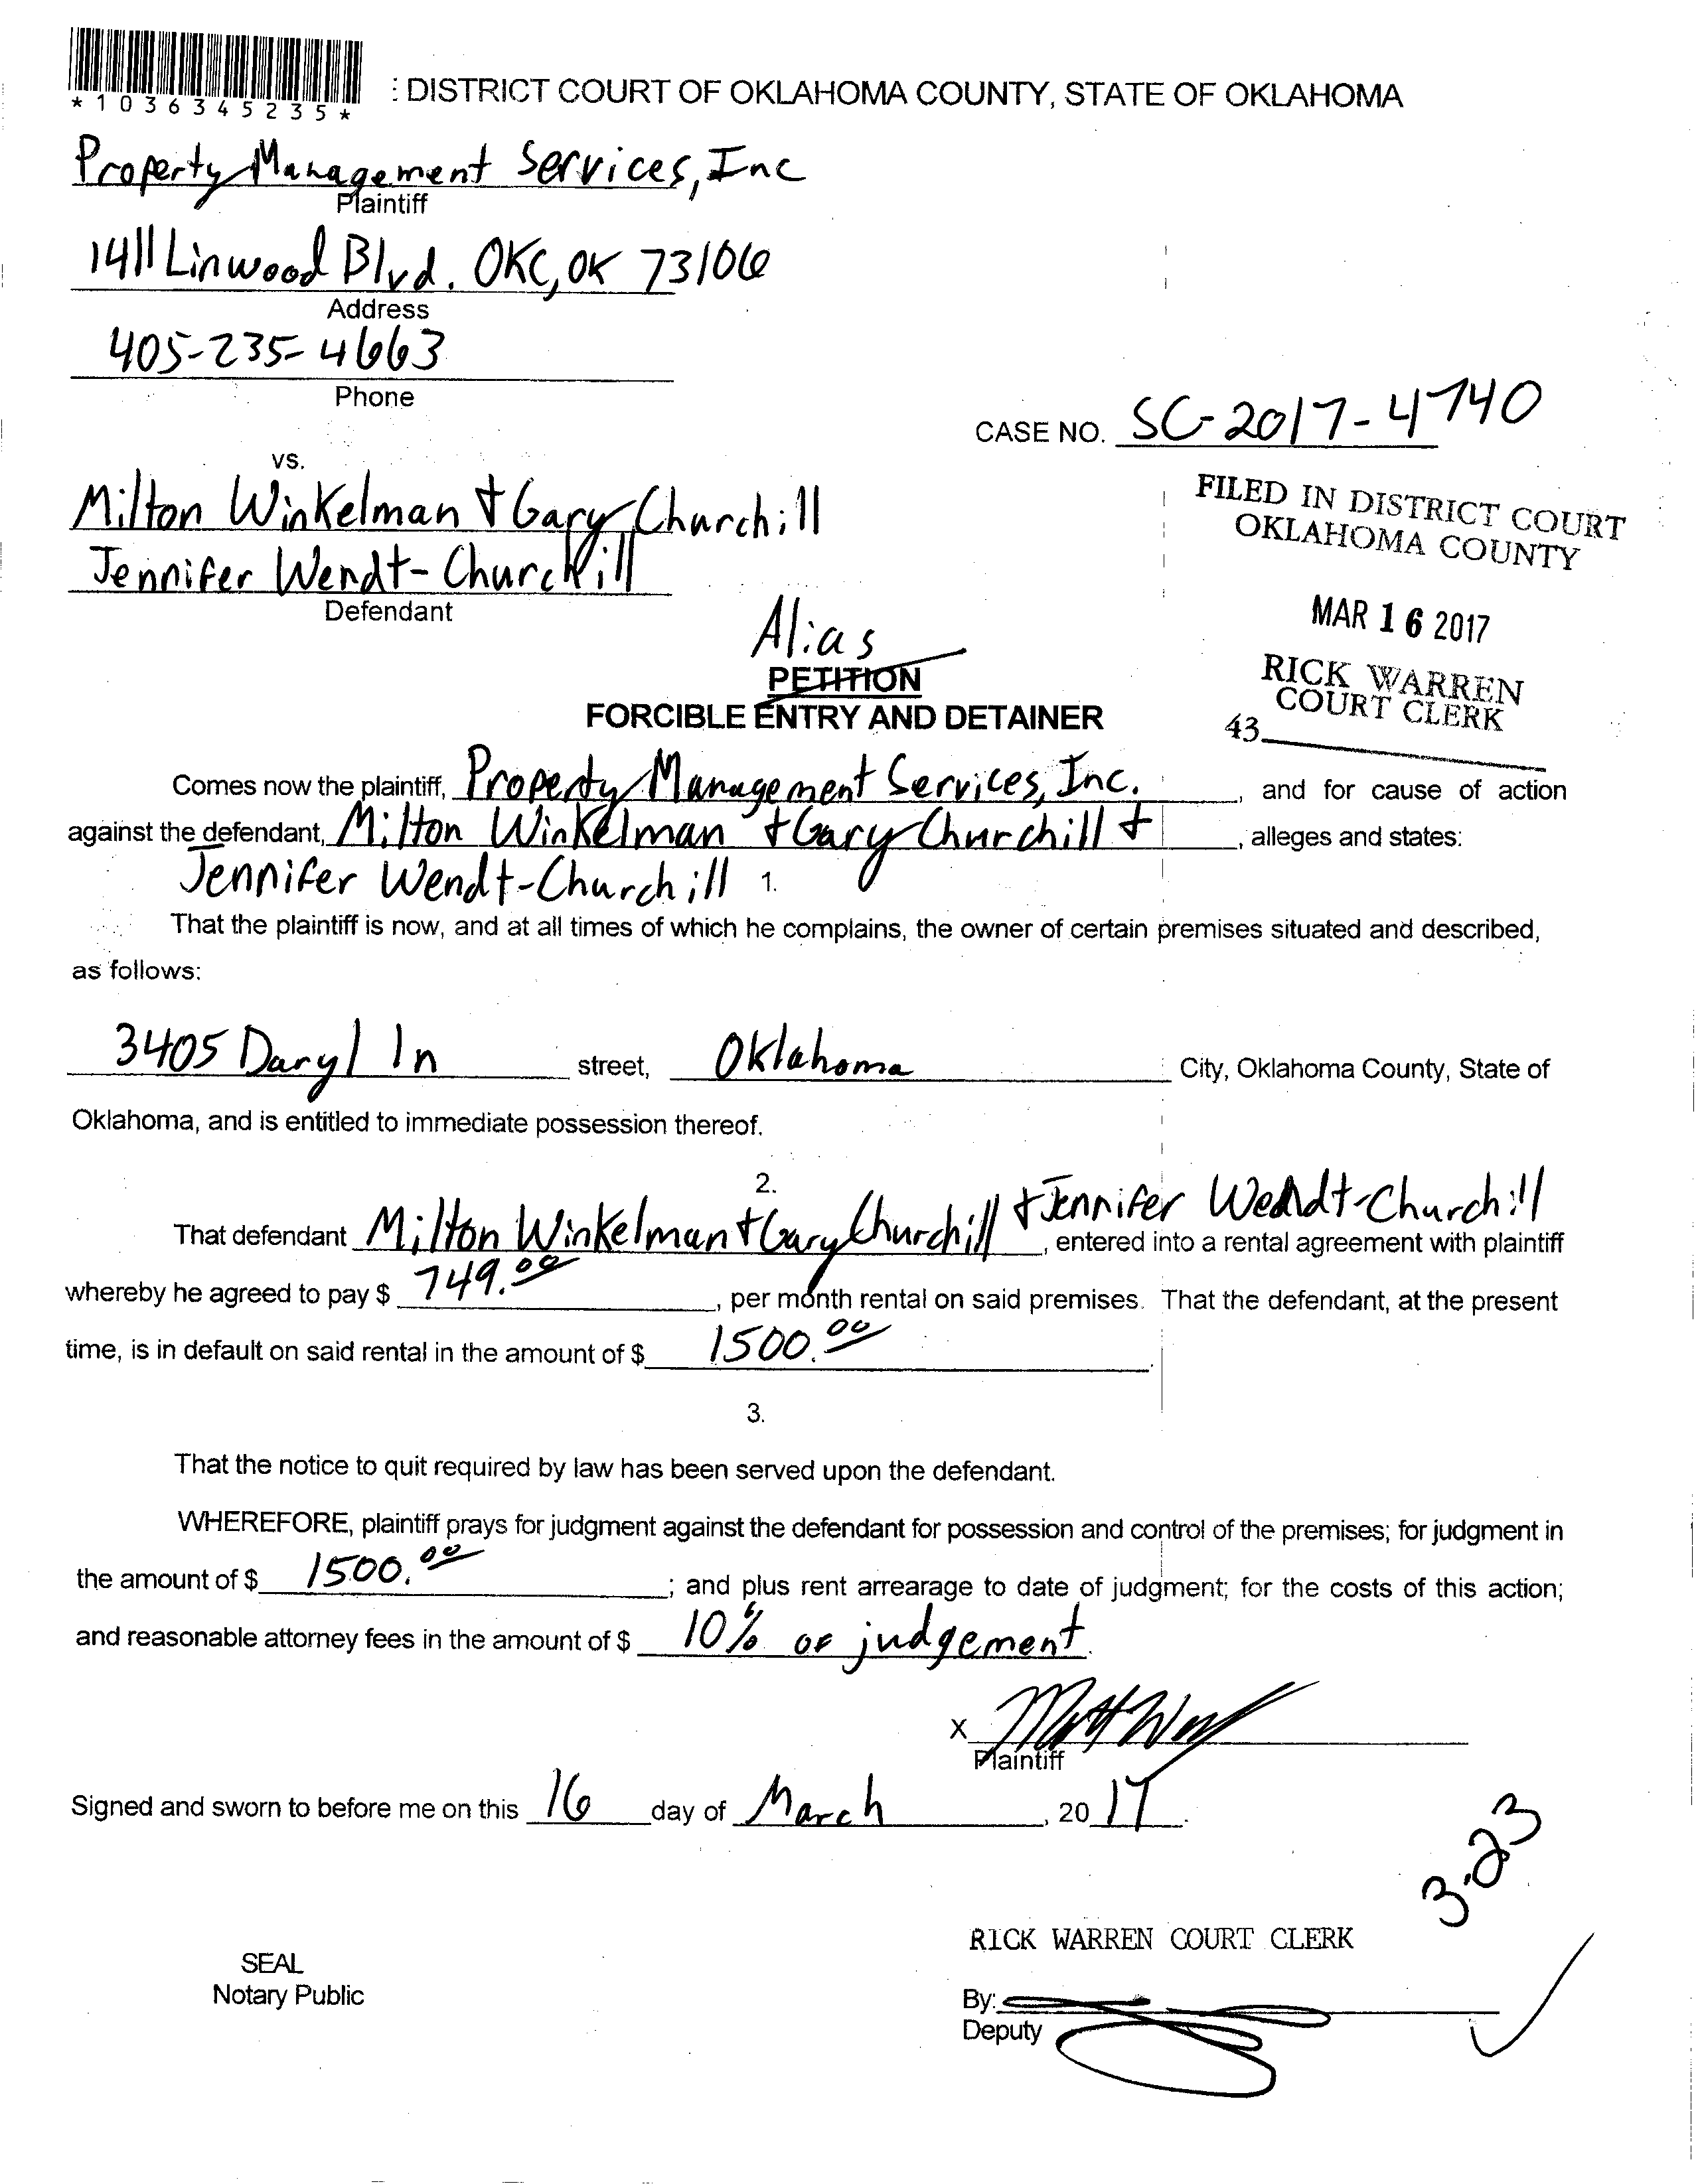 *1036345235*
: DISTRICT COURT OF OKLAHOMA COUNTY, STATE OF OKLAHOMA
Property Management Services, Inc
Plaintiff
1411 Linwood Blvd. OKC, OK 73106
Address
405-235-4663
Phone
CASE NO. SC-2017-4740
vs.
Milton Winkelman + Gary Churchill
Jennifer Wendt-Churchill
Defendant
FILED IN DISTRICT COURT
OKLAHOMA COUNTY
MAR 16 2017
RICK WARREN
COURT CLERK
43
Alias
PETITION
FORCIBLE ENTRY AND DETAINER
Comes now the plaintiff, Property Management Services, Inc. , and for cause of action
against the defendant, Milton Winkelman + Gary Churchill + , alleges and states:
Jennifer Wendt-Churchill 1.
That the plaintiff is now, and at all times of which he complains, the owner of certain premises situated and described,
as follows:
3405 Daryl ln street, Oklahoma City, Oklahoma County, State of
Oklahoma, and is entitled to immediate possession thereof.
2.
That defendant Milton Winkelman + Gary Churchill + Jennifer Wendt-Churchill, entered into a rental agreement with plaintiff
whereby he agreed to pay $ 749.00, per month rental on said premises. That the defendant, at the present
time, is in default on said rental in the amount of $ 1500.00.
3.
That the notice to quit required by law has been served upon the defendant.
WHEREFORE, plaintiff prays for judgment against the defendant for possession and control of the premises; for judgment in
the amount of $ 1500.00 ; and plus rent arrearage to date of judgment; for the costs of this action;
and reasonable attorney fees in the amount of $ 10% of judgement.
X
Plaintiff
Signed and sworn to before me on this 16 day of March, 2017.
3-23
RICK WARREN COURT CLERK
SEAL
Notary Public
By:
Deputy